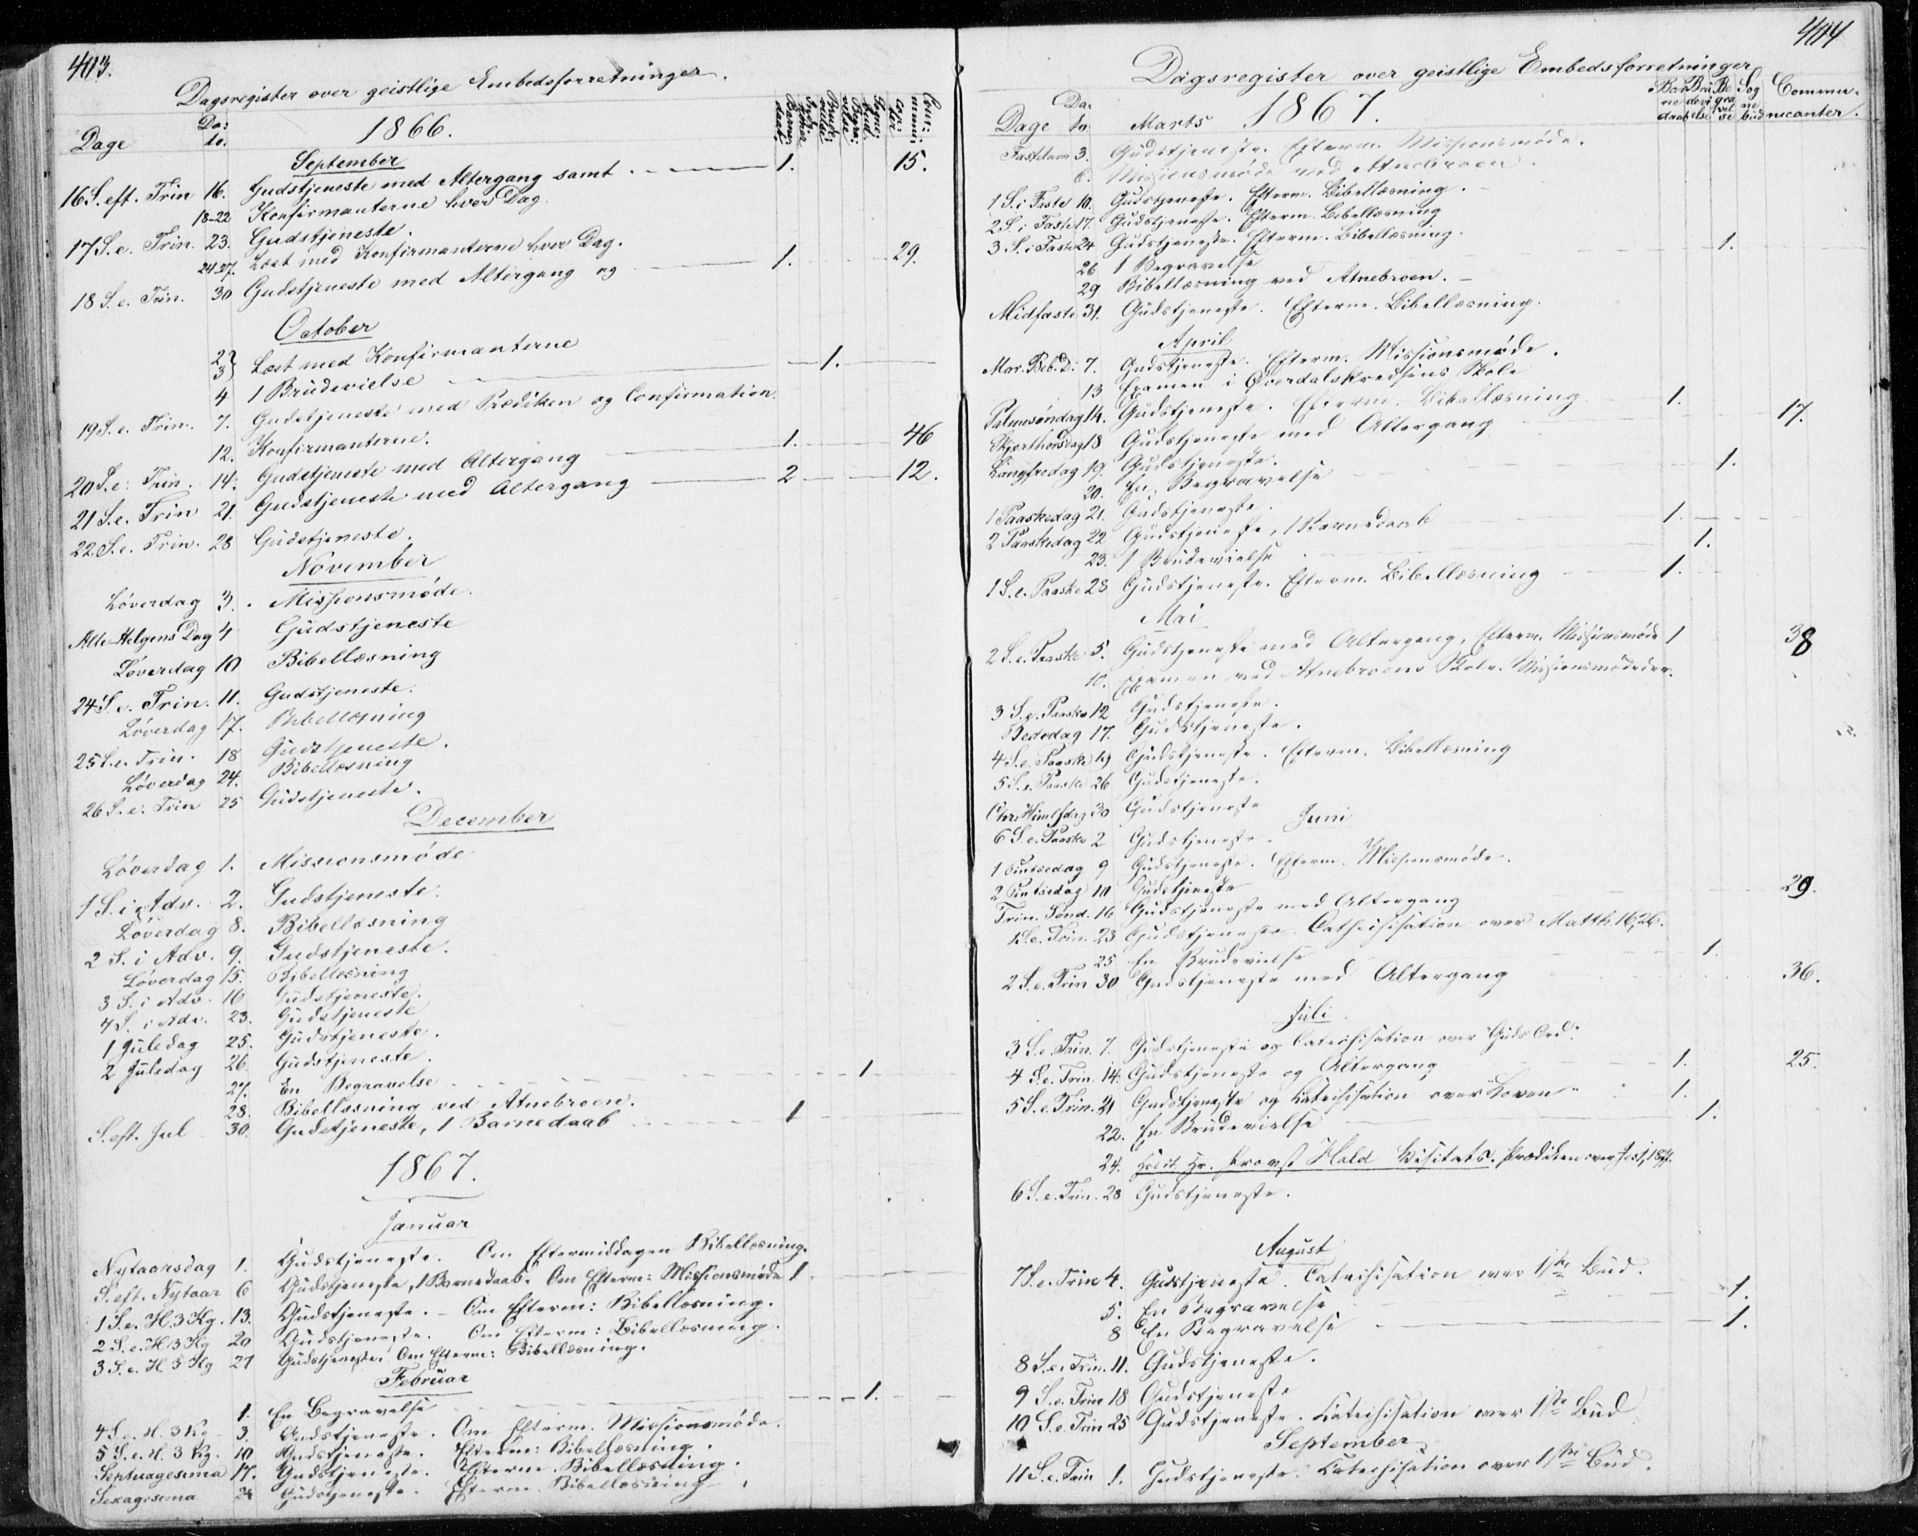 403.
Dagsregister over geistlige Embedsforretninger.
Dage Da: to. 1866. Barne daab. Brude vielse. Begra velse. Sogne bud. Com: munica:
September
16 S. eft. Trin 16. Gudstjeneste med Altergang samt 1. 15.
18-22 Konfirmanterne hver Dag.
17 S. e. Trin. 23. Gudstjeneste.
24-27. Læst med Konfirmanterne hver Dag.
18 S. e. Trin. 30 Gudstjeneste med Altergang og 1. 29
October
2 3} Læst med Konfirmanterne
4 1 Brudevielse 1.
19 S. e. Trin. 7. Gudstjeneste med Prædiken og Confirmation.
12. Konfirmanterne.
20 S. e. Trin. 14. Gudstjeneste med Altergang 1. 46
21 S. e. Trin 21. Gudstjeneste med Altergang 2 12.
22 S. e. Trin. 28 Gudstjeneste.
November
Løverdag 3. Missionsmøde.
Alle-Helgens Dag 4 Gudstjeneste
Løverdag 10 Bibellæsning
24 S. e. Trin. 11. Gudstjeneste.
Løverdag 17. Bibellæsning
25 S. e. Trin. 18 Gudstjeneste.
Løverdag 24. Bibellæsning
26 S. e. Trin 25 Gudstjeneste.
December
Løverdag 1. Missionsmøde
1 S. i Adv. 2. Gudstjeneste.
Løverdag 8. Bibellæsning
2 S. i Adv. 9. Gudstjeneste.
Løverdag 15. Bibellæsning
3 S. i Adv. 16 Gudstjeneste.
4 S. i Adv. 23. Gudstjeneste
1 Juledag 25. Gudstjeneste.
2 Juledag 26. Gudstjeneste.
27. En Begravelse 1
28. Bibellæsning ved Atnebroen.
S. eft. Jul 30. Gudstjeneste, 1 Barnedaab 1
1867.
Januar
Nytaarsdag 1. Gudstjeneste. Om Eftermiddagen Bibellæsning.
S. eft. Nytaar 6 Gudstjeneste, 1 Barnedaab. Om Efterm: Missionsmøde 1
1 S. e. H. 3 Kg. 13. Gudstjeneste. - Om Efterm: Bibellæsning.
2 S. e. H. 3 Kg 20 Gudstjeneste. Om Efterm: Bibellæsning.
3 S. e. H 3 Kg 27 Gudstjeneste. Om Efterm: Bibellæsning.
Februar
1. En Begravelse 1.
4 S. e. H. 3 Kg 3. Gudstjeneste. Om Efterm. Missionsmøde.
5 S. e. H. 3 Kg. 10 Gudstjeneste. Efterm: Bibellæsning.
Septuagesima 17. Gudstjeneste. Efterm. Bibellæsning.
Sexagesima 24 Gudstjeneste. Efterm. Bibellæsning
404
Dagsregister over geistlige Embedsforretninger
Dage Da: to. Marts 1867. Bar ne daab Bru devi else Be gra vel se Sog ne bud Commu- nicanter.
Fastelavn 3. Gudstjeneste. Efterm. Missionsmøde.
6. Missionsmøde ved Atnebroen.
1 S. i Faste 10. Gudstjeneste. Efterm. Bibellæsning.
2 S. i Faste 17. Gudstjeneste. Efterm. Bibellæsning
3 S. i Faste 24 Gudstjeneste. Efterm. Bibellæsning.
26 1 Begravelse 1.
29 Bibellæsning ved Atnebroen.
Midfaste 31. Gudstjeneste. Efterm. Bibellæsning.
April
Mar. Beb. D. 7. Gudstjeneste. Efterm. Missionsmøde.
13 Examen i Øverdalskredsens Skole
Palmesøndag 14. Gudstjeneste. Efterm. Bibellæsning 1.
Skjerthorsdag 18 Gudstjeneste med Altergang 17.
Langfredag 19. Gudstjeneste.
20. En Begravelse 1.
1 Paaskedag 21. Gudstjeneste.
2 Paaskedag 22 Gudstjeneste, 1 Barnedaab 1.
23. 1 Brudevielse 1.
1 S. e. Paaske 28 Gudstjeneste. Efterm. Bibellæsning 1.
Mai
2 S. e. Paaske 5. Gudstjeneste med Altergang, Efterm. Missionsmøde 1 38
10. Examen ved Atnebroens Skole. Missionsmøde der.
3 S. e. Paaske 12 Gudstjeneste.
Bededag 17. Gudstjeneste.
4 S. e. Paaske 19 Gudstjeneste. Efterm. Bibellæsning
5 S. e. Paaske 26 Gudstjeneste.
Chr. Himlfdag 30 Gudstjeneste
Juni
6 S. e. Paaske 2 Gudstjeneste.
1 Pintsedag 9 Gudstjeneste. Efterm. Missionsmøde.
2 Pintsedag 10 Gudstjeneste
Trin. Sønd. 16 Gudstjeneste med Altergang 29.
1 S. e. Trin. 23 Gudstjeneste. Cathechisation over Matth. 16,26.
25 En Brudevielse 1.
2 S. e. Trin 30 Gudstjeneste med Altergang 36.
Juli
3 S. e. Trin. 7. Gudstjeneste og Catechisation over "Guds Ord".
4 S. e. Trin. 14. Gudstjeneste og Altergang 1. 25.
5 S. e. Trin. 21 Gudstjeneste og Katechisation over "Loven" 1.
22. En Brudevielse 1.
24. Holdt Hr. Provst Hald Visitats. Prædiken over
6 S. e. Trin. 28 Gudstjeneste.
August
7 S. e. Trin 4. Gudstjeneste. Catechisation over 1ste Bud.
5. En Begravelse 1.
8 En Begravelse 1.
8 S. e. Trin. 11. Gudstjeneste.
9 S. e. Trin 18 Gudstjeneste
10 S. e. Trin 25 Gudstjeneste. Katechisation over 1ste Bud
September
11 S. e. Trin 1. Gudstjeneste. Katechisation over 1ste Bud.